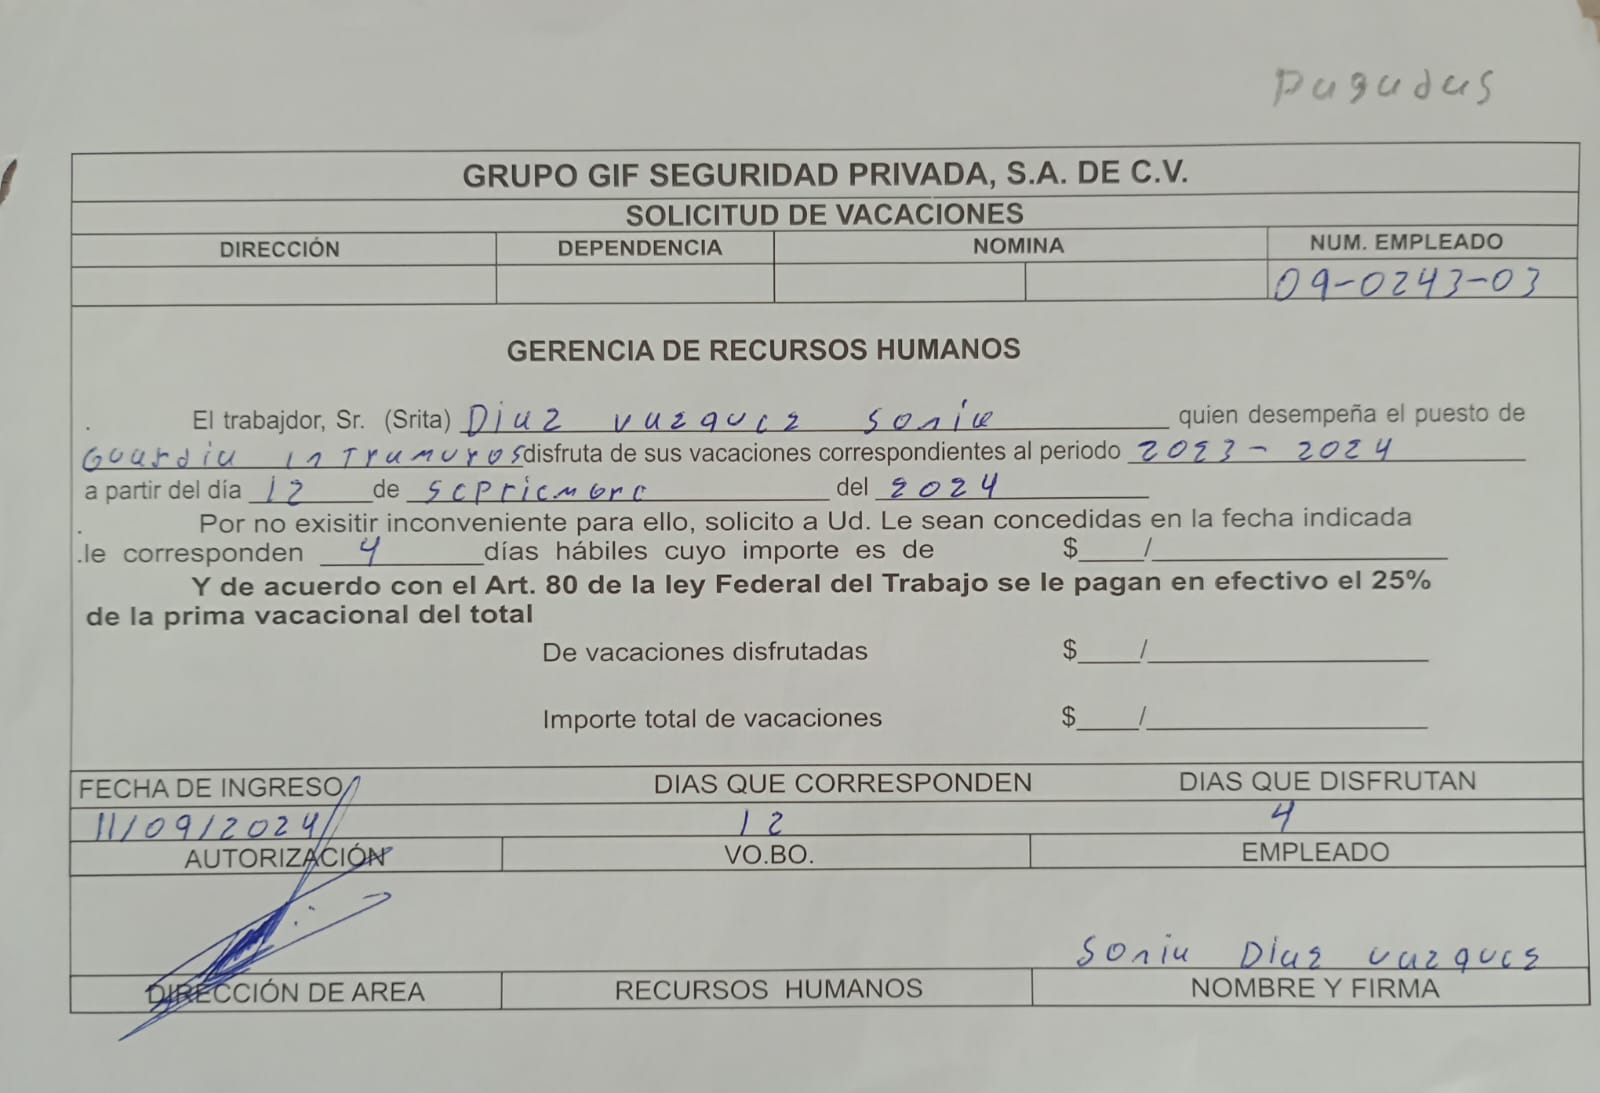 Pagadas
GRUPO GIF SEGURIDAD PRIVADA, S.A. DE C.V.
SOLICITUD DE VACACIONES
DIRECCIÓN DEPENDENCIA NOMINA NUM. EMPLEADO
09-0243-03
GERENCIA DE RECURSOS HUMANOS
. El trabajdor, Sr. (Srita) Diaz vazquez sonia quien desempeña el puesto de
Guardia intramuros disfruta de sus vacaciones correspondientes al periodo 2023-2024
a partir del día 12 de septiembre del 2024
. Por no exisitir inconveniente para ello, solicito a Ud. Le sean concedidas en la fecha indicada
.le corresponden 4 días hábiles cuyo importe es de $____/____
Y de acuerdo con el Art. 80 de la ley Federal del Trabajo se le pagan en efectivo el 25%
de la prima vacacional del total
De vacaciones disfrutadas $____/____
Importe total de vacaciones $____/____
FECHA DE INGRESO DIAS QUE CORRESPONDEN DIAS QUE DISFRUTAN
11/09/2024 12 4
AUTORIZACIÓN VO.BO. EMPLEADO
sonia Diaz vazquez
DIRECCIÓN DE AREA RECURSOS HUMANOS NOMBRE Y FIRMA